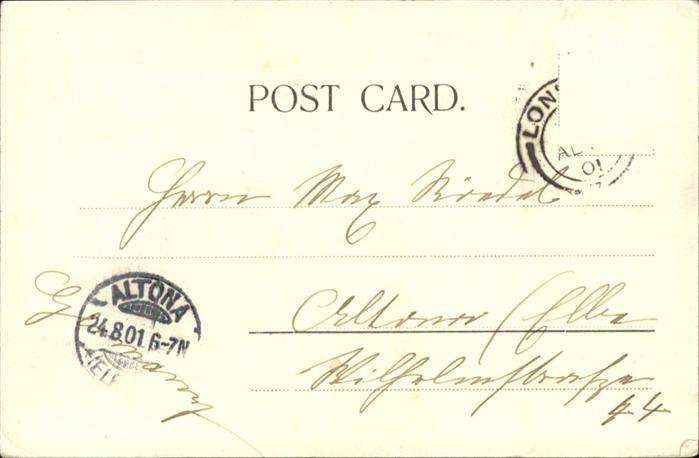 POST CARD.
LON
AU
01
Herrn Max Riedel
ALTONA
24.8.01 6-7N
Germany
Altona / Elbe
Wilhelmstrasse
44